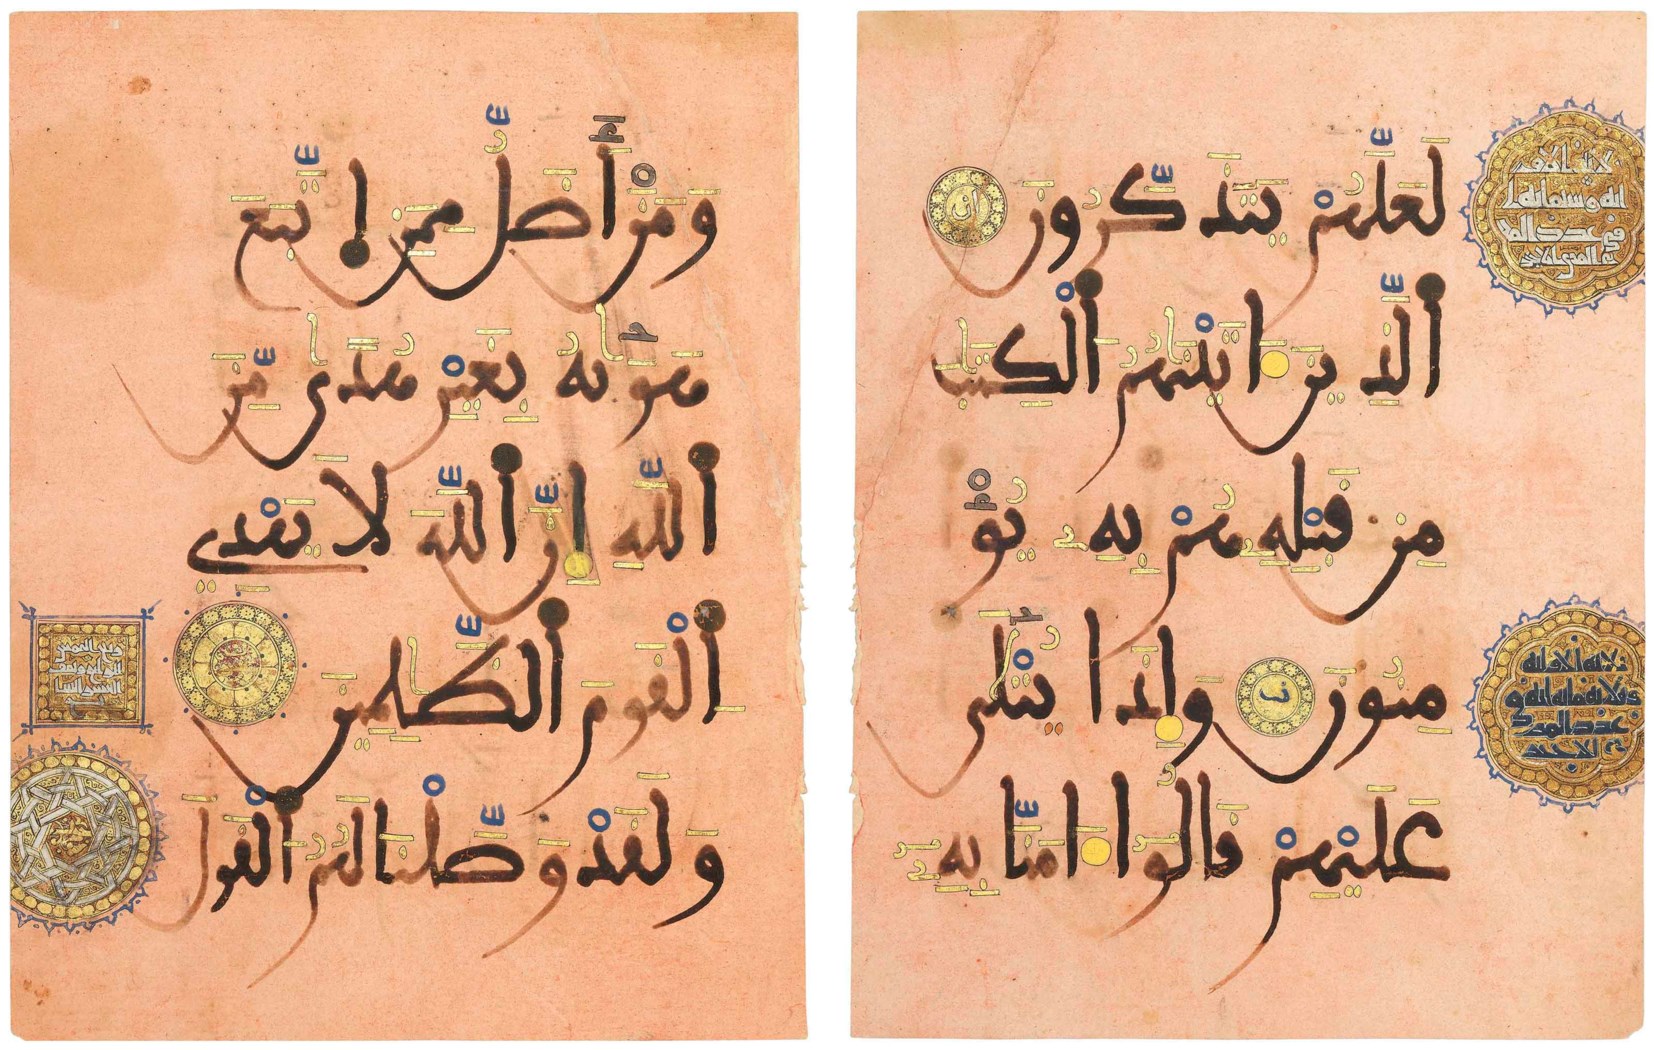 وَمَنْ أَضَلُّ مِمَّنِ اتَّبَعَ
هَوَىٰهُ بِغَيْرِ هُدًى مِّنَ
اَللَّهِ إِنَّ اَللَّهَ لَا يَهْدِي
اَلْقَوْمَ اَلظَّٰلِمِينَ
وَلَقَدْ وَصَّلْنَا لَهُمُ اَلْقَوْلَ
لَعَلَّهُمْ يَتَذَكَّرُونَ
اَلَّذِينَ اتَيْنَٰهُمُ اَلْكِتَٰبَ
مِن قَبْلِهِ هُمْ بِهِ يُو
مِنُونَ وَإِذَا يُتْلَىٰ
عَلَيْهِمْ قَالُوا امَنَّا بِهِ